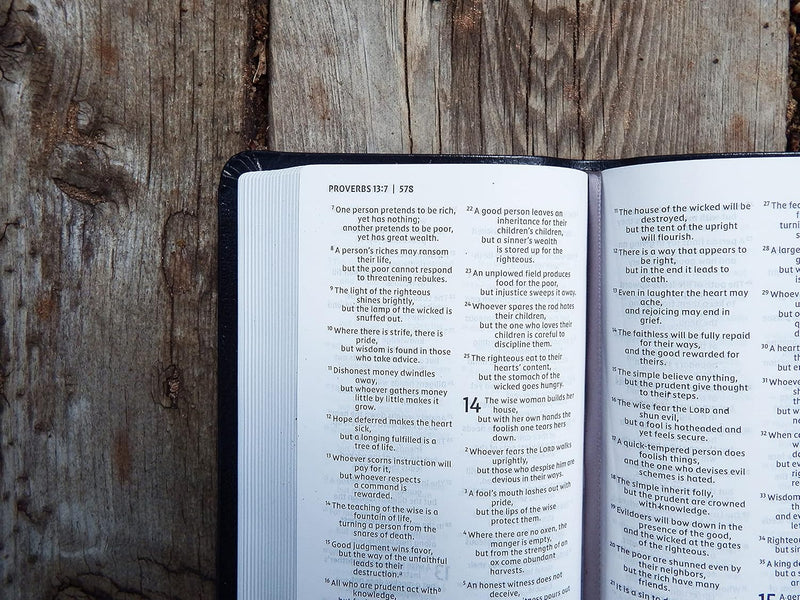 PROVERBS 13:7 | 578
7 One person pretends to be rich,
yet has nothing;
another pretends to be poor,
yet has great wealth.
8 A person's riches may ransom
their life,
but the poor cannot respond
to threatening rebukes.
9 The light of the righteous
shines brightly,
but the lamp of the wicked is
snuffed out.
10 Where there is strife, there is
pride,
but wisdom is found in those
who take advice.
11 Dishonest money dwindles
away,
but whoever gathers money
little by little makes it
grow.
12 Hope deferred makes the heart
sick,
but a longing fulfilled is a
tree of life.
13 Whoever scorns instruction will
pay for it,
but whoever respects
a command is
rewarded.
14 The teaching of the wise is a
fountain of life,
turning a person from the
snares of death.
15 Good judgment wins favor,
but the way of the unfaithful
leads to their
destruction.a
16 All who are prudent act with b
knowledge,
22 A good person leaves an
inheritance for their
children's children,
but a sinner's wealth
is stored up for the
righteous.
23 An unplowed field produces
food for the poor,
but injustice sweeps it away.
24 Whoever spares the rod hates
their children,
but the one who loves their
children is careful to
discipline them.
25 The righteous eat to their
hearts' content,
but the stomach of the
wicked goes hungry.
14 The wise woman builds her
house,
but with her own hands the
foolish one tears hers
down.
2 Whoever fears the LORD walks
uprightly,
but those who despise him are
devious in their ways.
3 A fool's mouth lashes out with
pride,
but the lips of the wise
protect them.
4 Where there are no oxen, the
manger is empty,
but from the strength of an
ox come abundant
harvests.
5 An honest witness does not
deceive,
witness pours out
11 The house of the wicked will be
destroyed,
but the tent of the upright
will flourish.
12 There is a way that appears to
be right,
but in the end it leads to
death.
13 Even in laughter the heart may
ache,
and rejoicing may end in
grief.
14 The faithless will be fully repaid
for their ways,
and the good rewarded for
theirs.
15 The simple believe anything,
but the prudent give thought
to their steps.
16 The wise fear the LORD and
shun evil,
but a fool is hotheaded and
yet feels secure.
17 A quick-tempered person does
foolish things,
and the one who devises evil
schemes is hated.
18 The simple inherit folly,
but the prudent are crowned
with knowledge.
19 Evildoers will bow down in the
presence of the good,
and the wicked at the gates
of the righteous.
20 The poor are shunned even by
their neighbors,
but the rich have many
friends.
21 It is a sin to
27 The
turni
28 A large
29 Whoev
30 A heart
31 Whoev
32 When
33 Wisdom
and
34 Righteou
but sin
35 A king
15 A